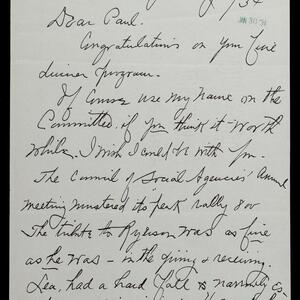 /34
JAN 30 34
Dear Paul.
Congratulations on your fine
dinner program.
Of course use my name on the
Committee, if you think it worth
while. I wish I could be with you.
The Council of Social Agencies' Annual
meeting mustered its peak rally 800
The tribute to Ryerson was as fine
as he was – in the giving & receiving.
Lea, had a hard fall & narrowly es-